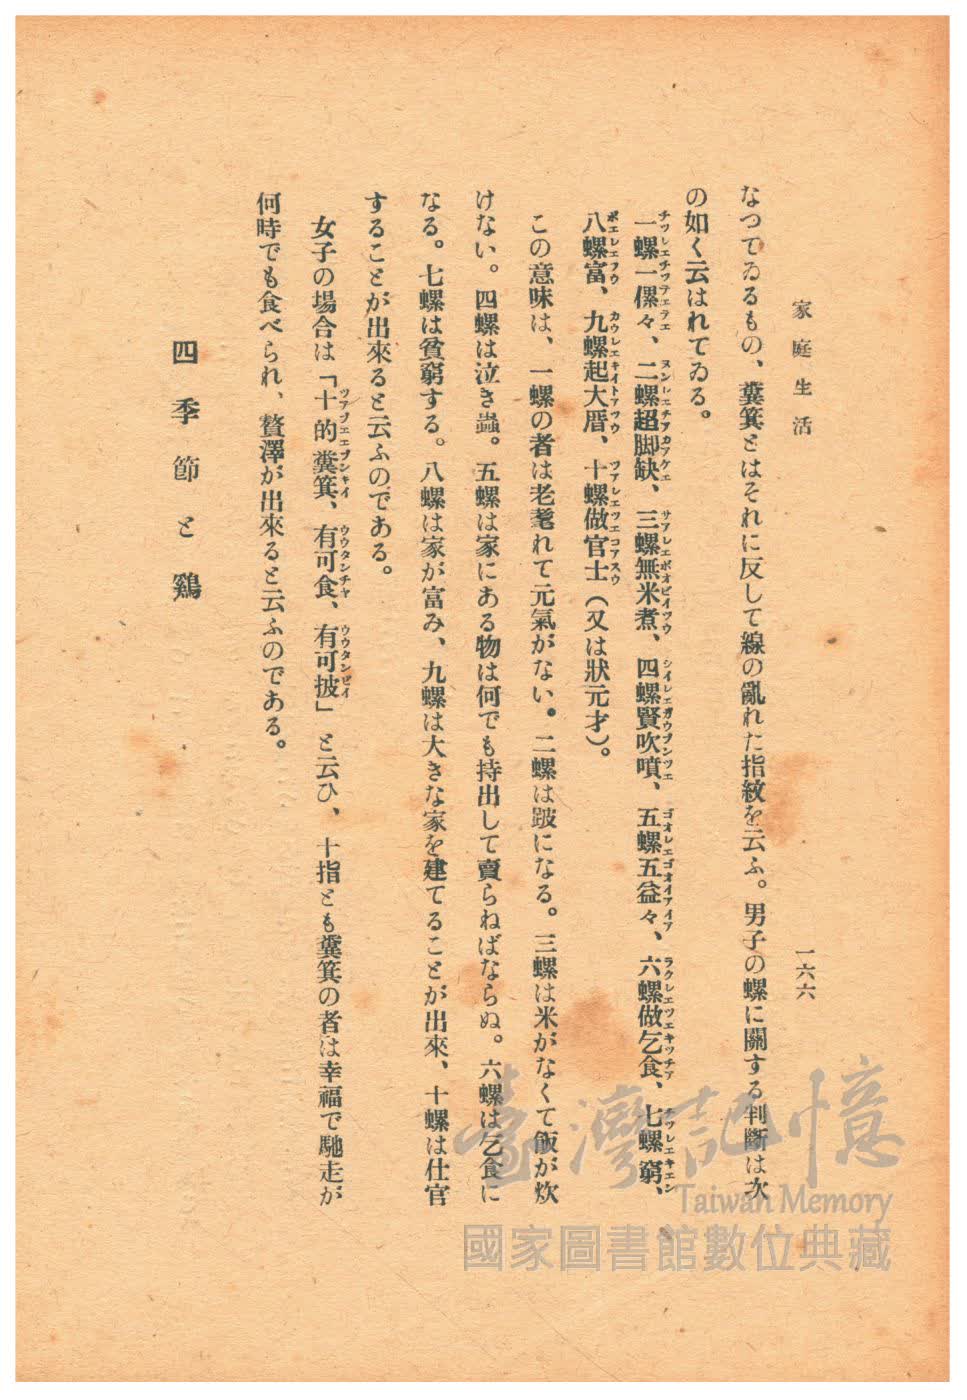 家庭生活
一六六
なつてゐるもの、糞箕とはそれに反して線の亂れた指紋を云ふ。男子の螺に關する判斷は次
の如く云はれてゐる。
一螺一傫々、二螺超脚缺、三螺無米煮、四螺賢吹噴、五螺五益々、六螺做乞食、七螺窮、
八螺富、九螺起大厝、十螺做官士（又は狀元才）。
この意味は、一螺の者は老耄れて元氣がない。二螺は跛になる。三螺は米がなくて飯が炊
けない。四螺は泣き蟲。五螺は家にある物は何でも持出して賣らねばならぬ。六螺は乞食に
なる。七螺は貧窮する。八螺は家が富み、九螺は大きな家を建てることが出來、十螺は仕官
することが出來ると云ふのである。
女子の場合は「十的糞箕、有可食、有可披」と云ひ、十指とも糞箕の者は幸福で馳走が
何時でも食べられ、贅澤が出來ると云ふのである。
四季節と鷄
臺灣記憶
Taiwan Memory
國家圖書館數位典藏